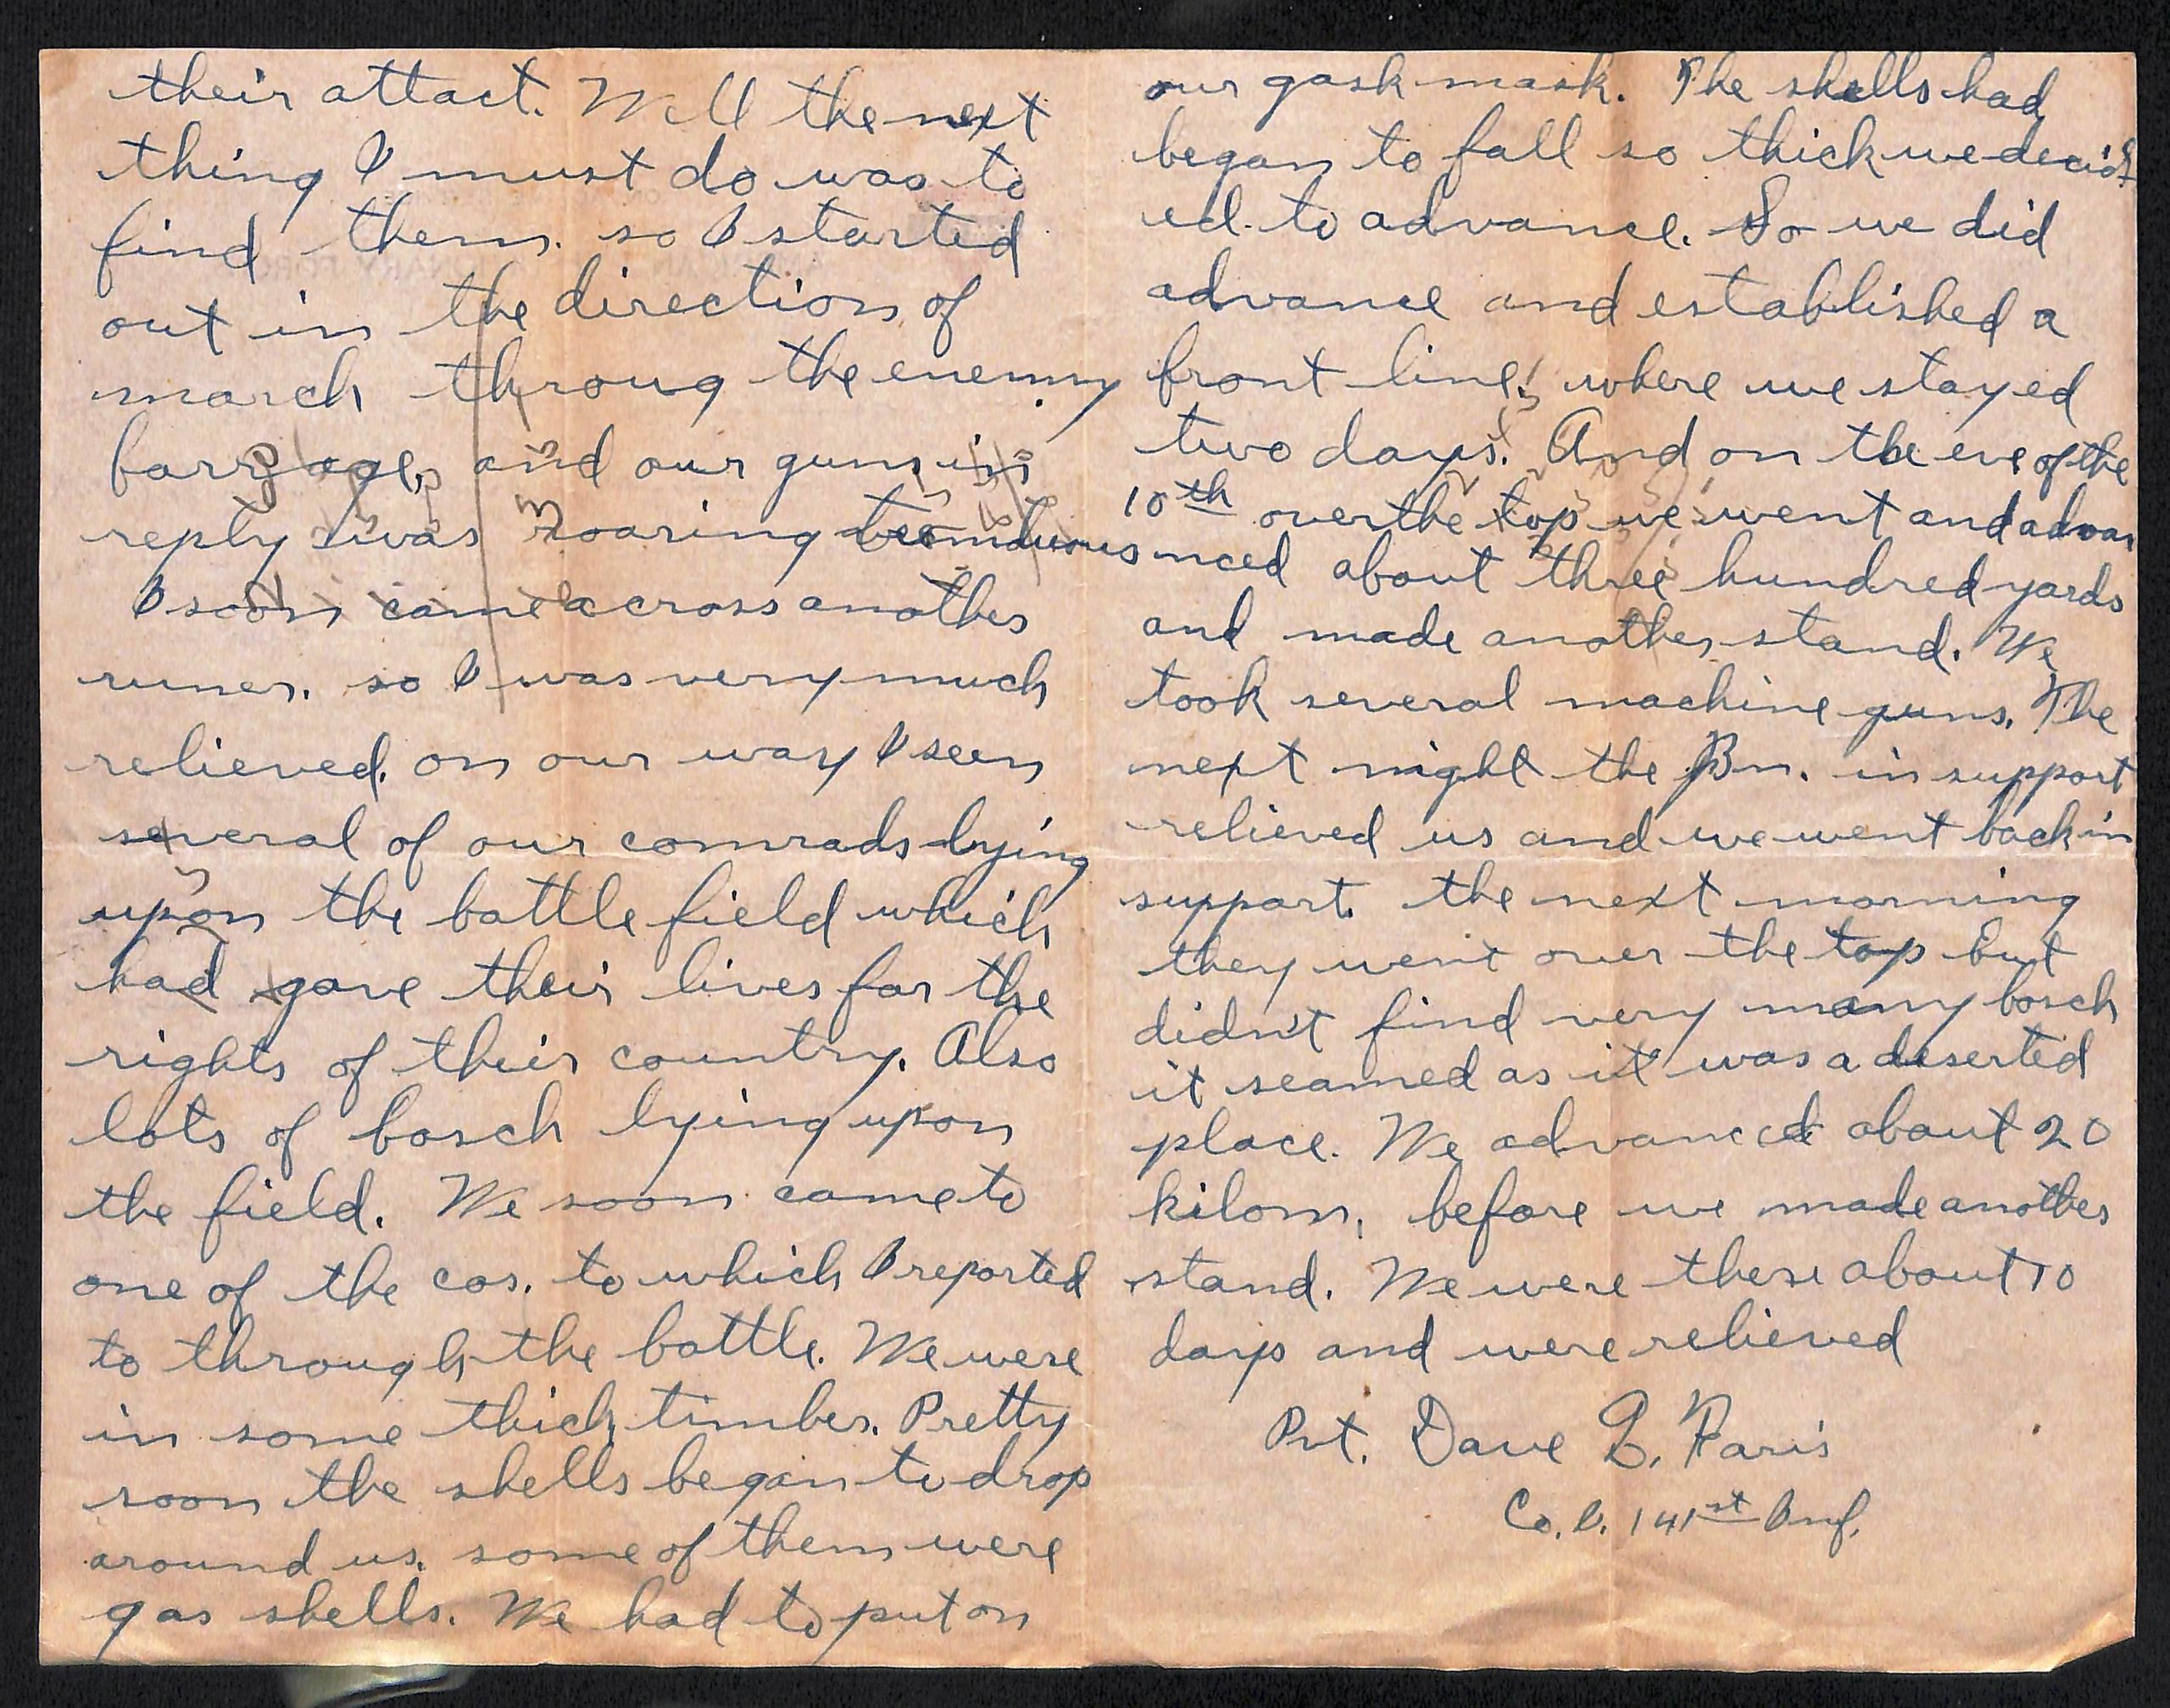 their attact. Well the next
thing I must do was to
find them. so I started
out in the direction of
march throug the enemy
barrage, and our guns in
reply was roaring tremenduous
I soon came across another
runer. so I was very much
relieved. on our way I seen
several of our comrads lying
upon the battle field which
had gave their lives for the
rights of their country. Also
lots of bosch lying upon
the field. We soon came to
one of the cos. to which I reported
to through the battle. We were
in some thick timber. Pretty
soon the shells began to drop
around us. some of them were
gas shells. We had to put on
our gask mask. The shells had
began to fall so thick we decid
ed to advance. So we did
advance and established a
front line, where we stayed
two days. And on the eve of the
10th over the top we went and adva
nced about three hundred yards
and made another stand. We
took several machine guns. The
next night the Bn. in support
relieved us and we went back in
support. the next morning
they went over the top but
didn't find very many bosch
it seamed as it was a deserted
place. We advanced about 20
kilom. before we made another
stand. We were there about 10
days and were relieved
Pvt. Dave E. Faris
Co. C. 141st Inf.